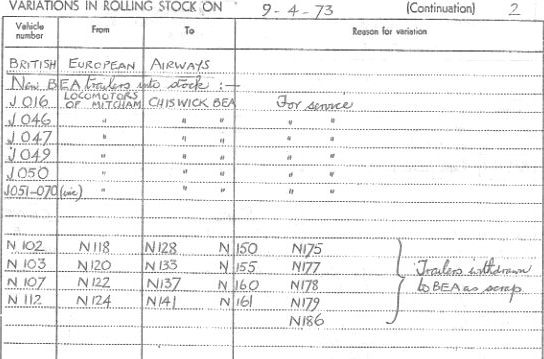 VARIATIONS IN ROLLING STOCK ON 9-4-73 (Continuation) 2
Vehicle number From To Reason for variation
BRITISH EUROPEAN AIRWAYS
New BEA trailers into stock :—
J 016 LOCOMOTORS OF MITCHAM CHISWICK BEA For service
J 046 " " " " "
J 047 " " " " "
J 049 " " " " "
J 050 " " " " "
J051-070 (inc) " " " " "
N 102 N118 N128 N 150 N175
N 103 N120 N133 N 155 N177 Trailers withdrawn
N 107 N122 N137 N 160 N178 to BEA as scrap
N 112 N124 N141 N 161 N179
N186